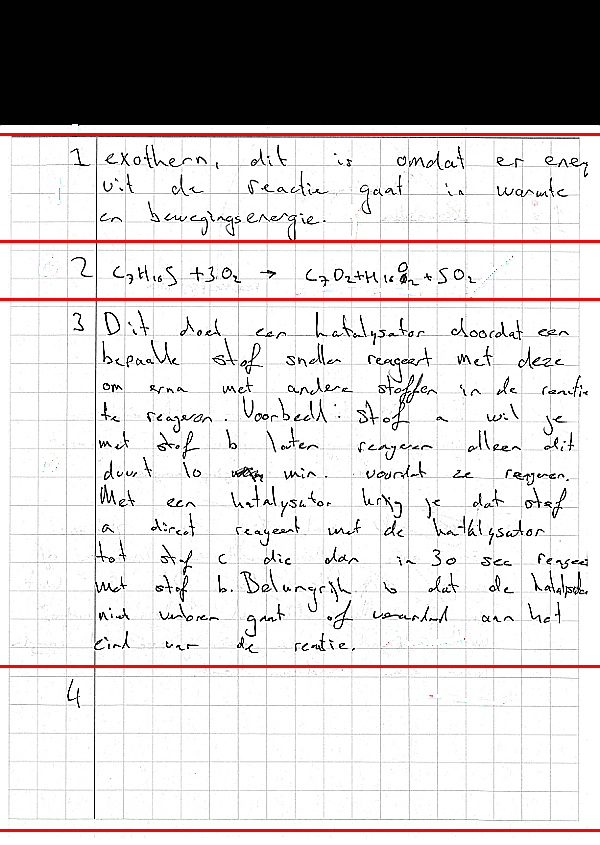 1 exotherm, dit is omdat er ener
uit de reactie gaat in warmte
en bewegingsenergie.
2 C₇H₁₆S + 3O₂ → C₇O₂+H₁₆O₂ + SO₂
3 Dit doet een katalysator doordat een
bepaalde stof sneller reageert met deze
om erna met andere stoffen in de reactie
te reageren. Voorbeeld: stof a wil je
met stof b laten reageren alleen dit
duurt 10 min. voordat ze reageren.
Met een katalysator krijg je dat stof
a direct reageert met de katalysator
tot stof c die dan in 30 sec reageer
met stof b. Belangrijk is dat de katalysator
niet verloren gaat of veranderd aan het
eind van de reactie.
4